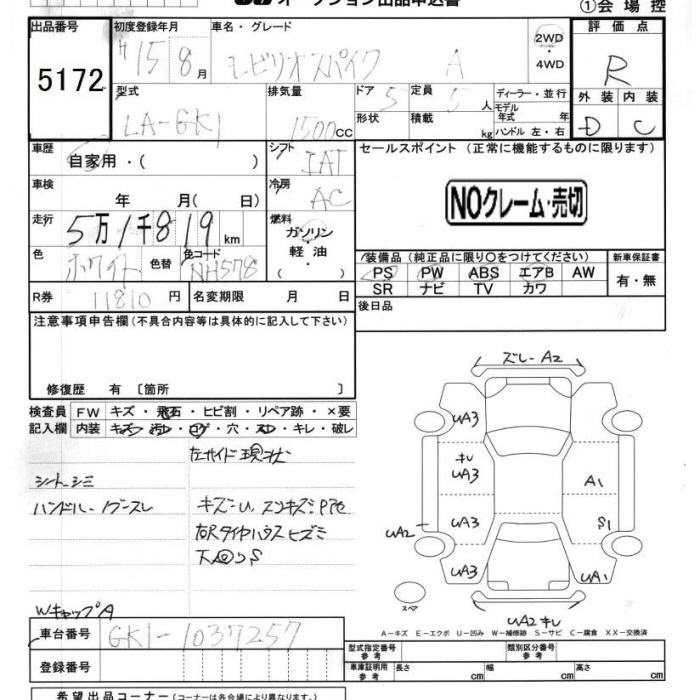 オークション出品申込書
①会場控
出品番号
5172
初度登録年月
H15年8月
車名・グレード
モビリオスパイク A
2WD
・4WD
評価点
R
外装 内装
D C
型式
LA-GK1
排気量
1500cc
ドア 5
定員 5人
形状
積載 kg
ディーラー・並行
モデル年式 年
ハンドル 左・右
車歴
自家用・( )
シフト
IAT
セールスポイント (正常に機能するものに限ります)
NOクレーム・売切
車検
年 月( 日)
冷房
AC
走行
5万1千819km
燃料
ガソリン
軽油
・
色
ホワイト
色替
色コード
NH578
装備品(純正品に限り○をつけてください)
PS PW ABS エアB AW
SR ナビ TV カワ
新車保証書
有・無
R券 11810円
名変期限 月 日
後日品
注意事項申告欄(不具合内容等は具体的に記入して下さい)
修復歴 有 〔箇所 〕
検査員記入欄
FW キズ・飛石・ヒビ割・リペア跡・×要
内装 キズ・汚レ・コゲ・穴・スレ・キレ・破レ
左サイド現状
シートシミ
ハンドルノブスレ
キズ・U、スンキズP他
右Rタイヤハウスヒズミ
下回りS
WキャップA
ズレ-A2
UA3
キレ
UA3
UA3
UA2
UA3
A1
S1
UA1
UA2キレ
スペア
A-キズ E-エクボ U-凹み W-補修跡 S-サビ C-腐食 XX-交換済
車台番号
GK1-1037257
登録番号
型式指定番号
参考
類別区分番号
参考
車庫証明用
参考
長さ cm
幅 cm
高さ cm
希望出品コーナー(コーナーは各会場により異なります。)